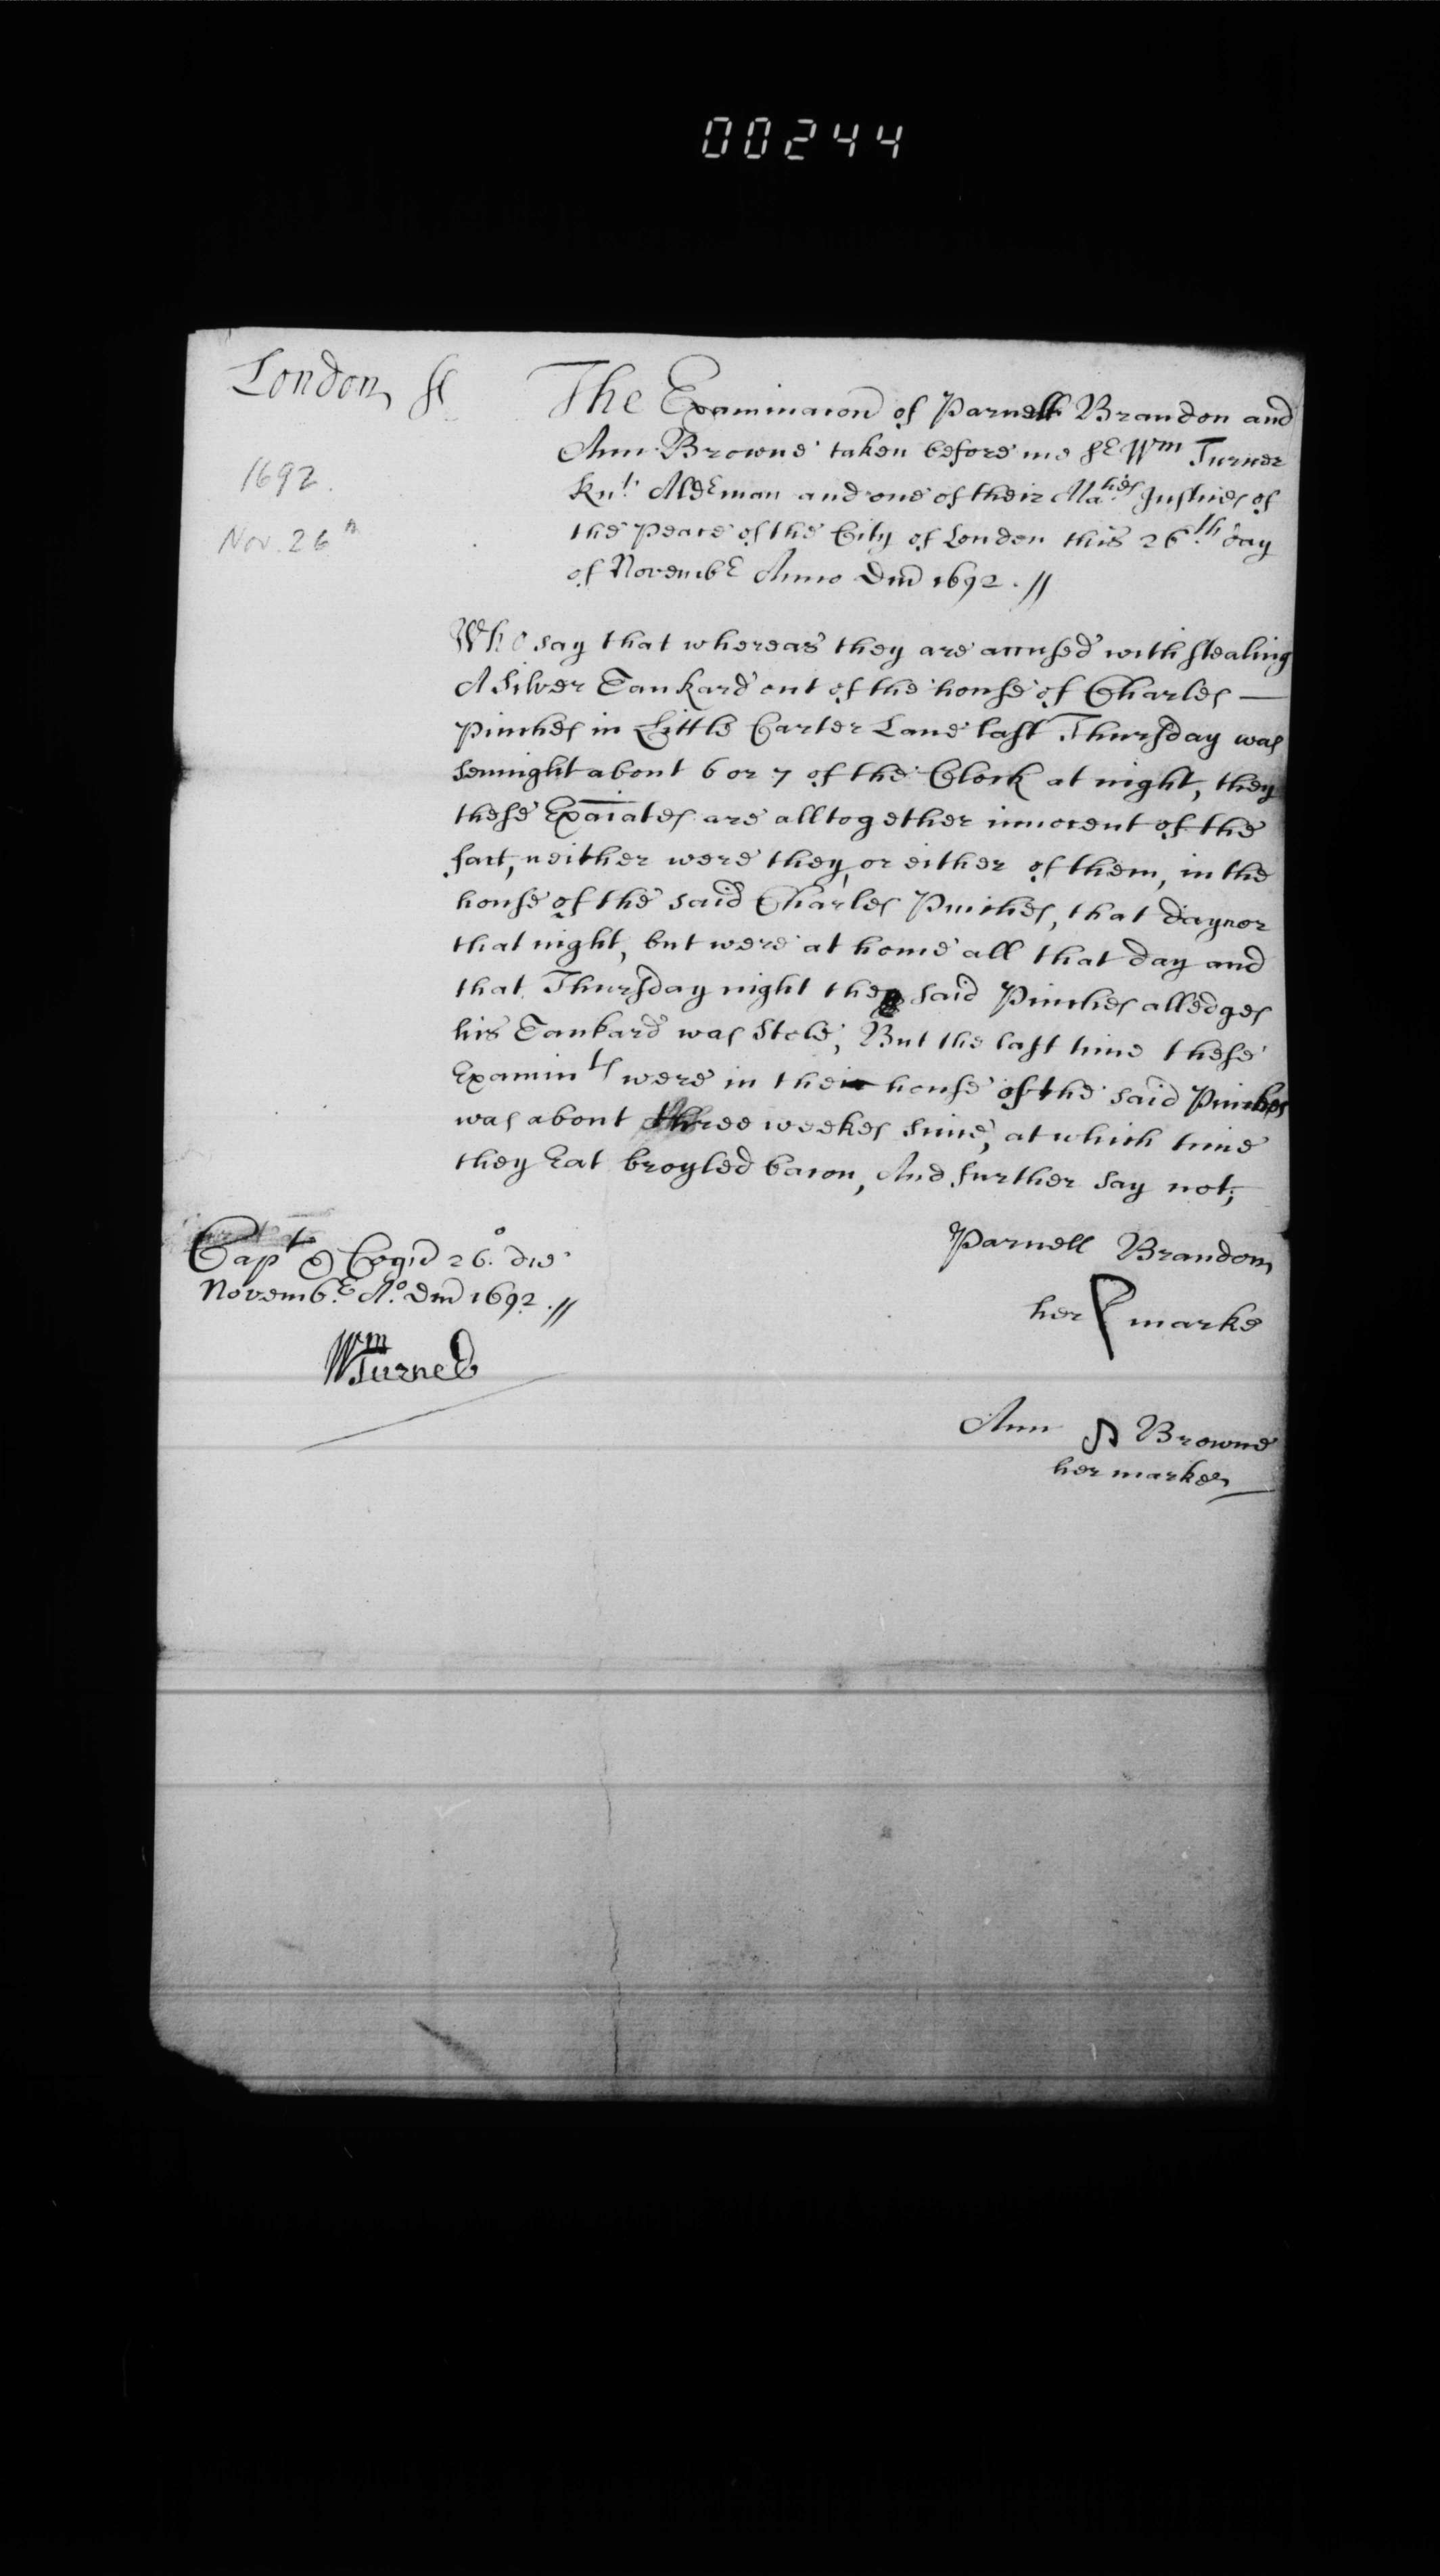 00244
London ss
The Examinacon of Parnell Brandon and
Ann Browne taken before me Sr Wm Turner
Knt. Aldrman and one of their Maties Justices of
the Peace of the City of London this 26th day
of Novembr Anno Dm 1692. //
1692.
Nov. 26th
Who say that whereas they are accused with stealing
A Silver Tankard out of the house of Charles —
Pinches in Little Carter Lane last Thursday was
sennight about 6 or 7 of the Clock at night, they
these Exaiates are alltogether innocent of the
fact, neither were they, or either of them, in the
house of the said Charles Pinches, that day nor
that night, but were at home all that day and
that Thursday night the said Pinches alledges
his Tankard was Stole; But the last time these
Examints were in the house of the said Pinches
was about three weekes since, at which time
they Eat broyled bacon, And further say not;
Capt & Cogn 26o. die
Novembr. Ao. Dm 1692. //
Wm Turner
Parnell Brandon
her P marke
Ann Browne
her marke